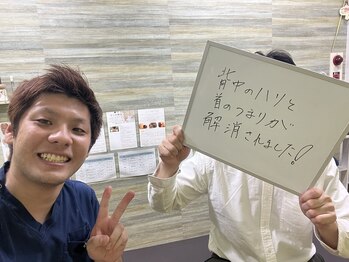 背中のハリと
首のつまりが
解消されました!